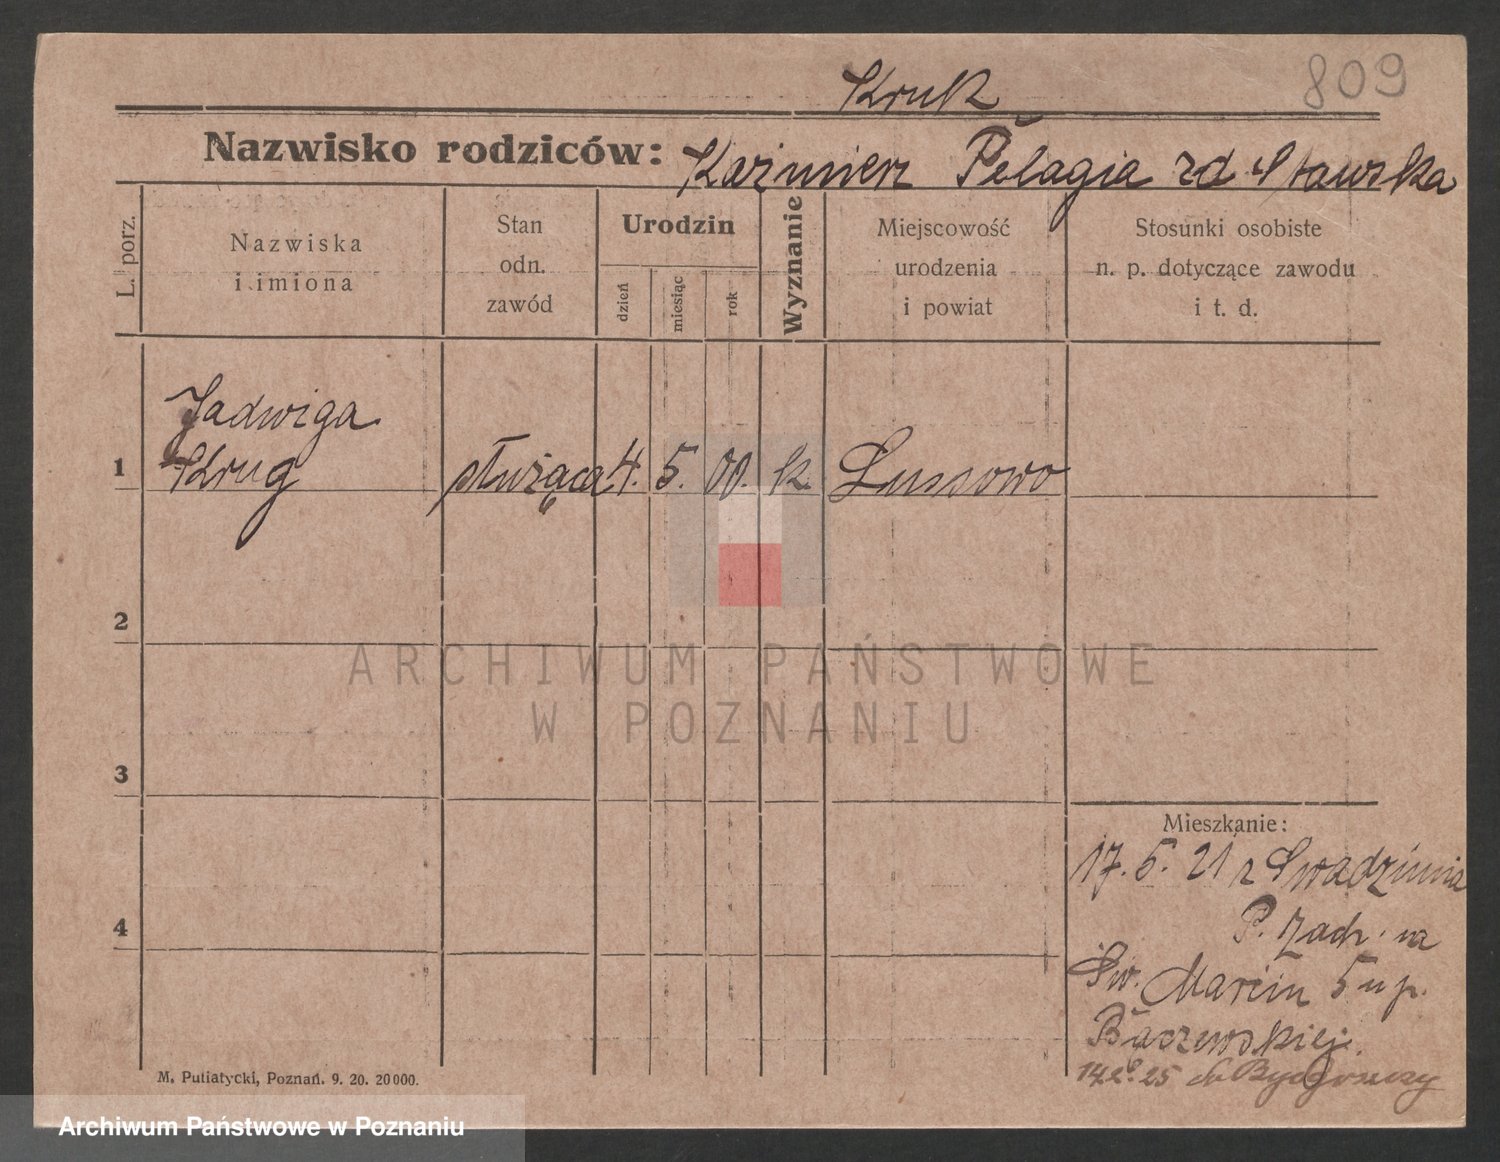 809
Kruk
Nazwisko rodziców: Kazimierz Pelagia zd. Stawska
L. porz.
Nazwiska i imiona
Stan odn. zawód
Urodzin
dzień
miesiąc
rok
Wyznanie
Miejscowość urodzenia i powiat
Stosunki osobiste n. p. dotyczące zawodu i t. d.
Jadwiga
1 Krug służąca 4. 5. 00. k. Lussowo
2
3
4
ARCHIWUM PAŃSTWOWE
W POZNANIU
Mieszkanie:
17. 5. 21 z Swadzimia
P. Zach. na
Św. Marcin 5 u p.
Baszewskiej.
25 do Bydgoszczy
M. Putiatycki, Poznań. 9. 20. 20000.
Archiwum Państwowe w Poznaniu